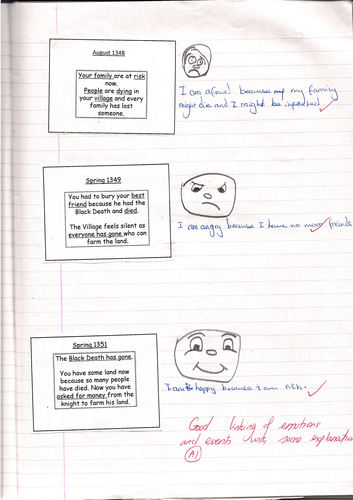 August 1348
Your family are at risk
now.
People are dying in
your village and every
family has lost
someone.
I am afraid because my family
might die and I might be infected
Spring 1349
You had to bury your best
friend because he had the
Black Death and died.
The Village feels silent as
everyone has gone who can
farm the land.
I am angry because I have no more friends
Spring 1351
The Black Death has gone.
You have some land now
because so many people
have died. Now you have
asked for money from the
knight to farm his land.
I am happy because I am rich.
Good linking of emotions
and events with some explanation
A1